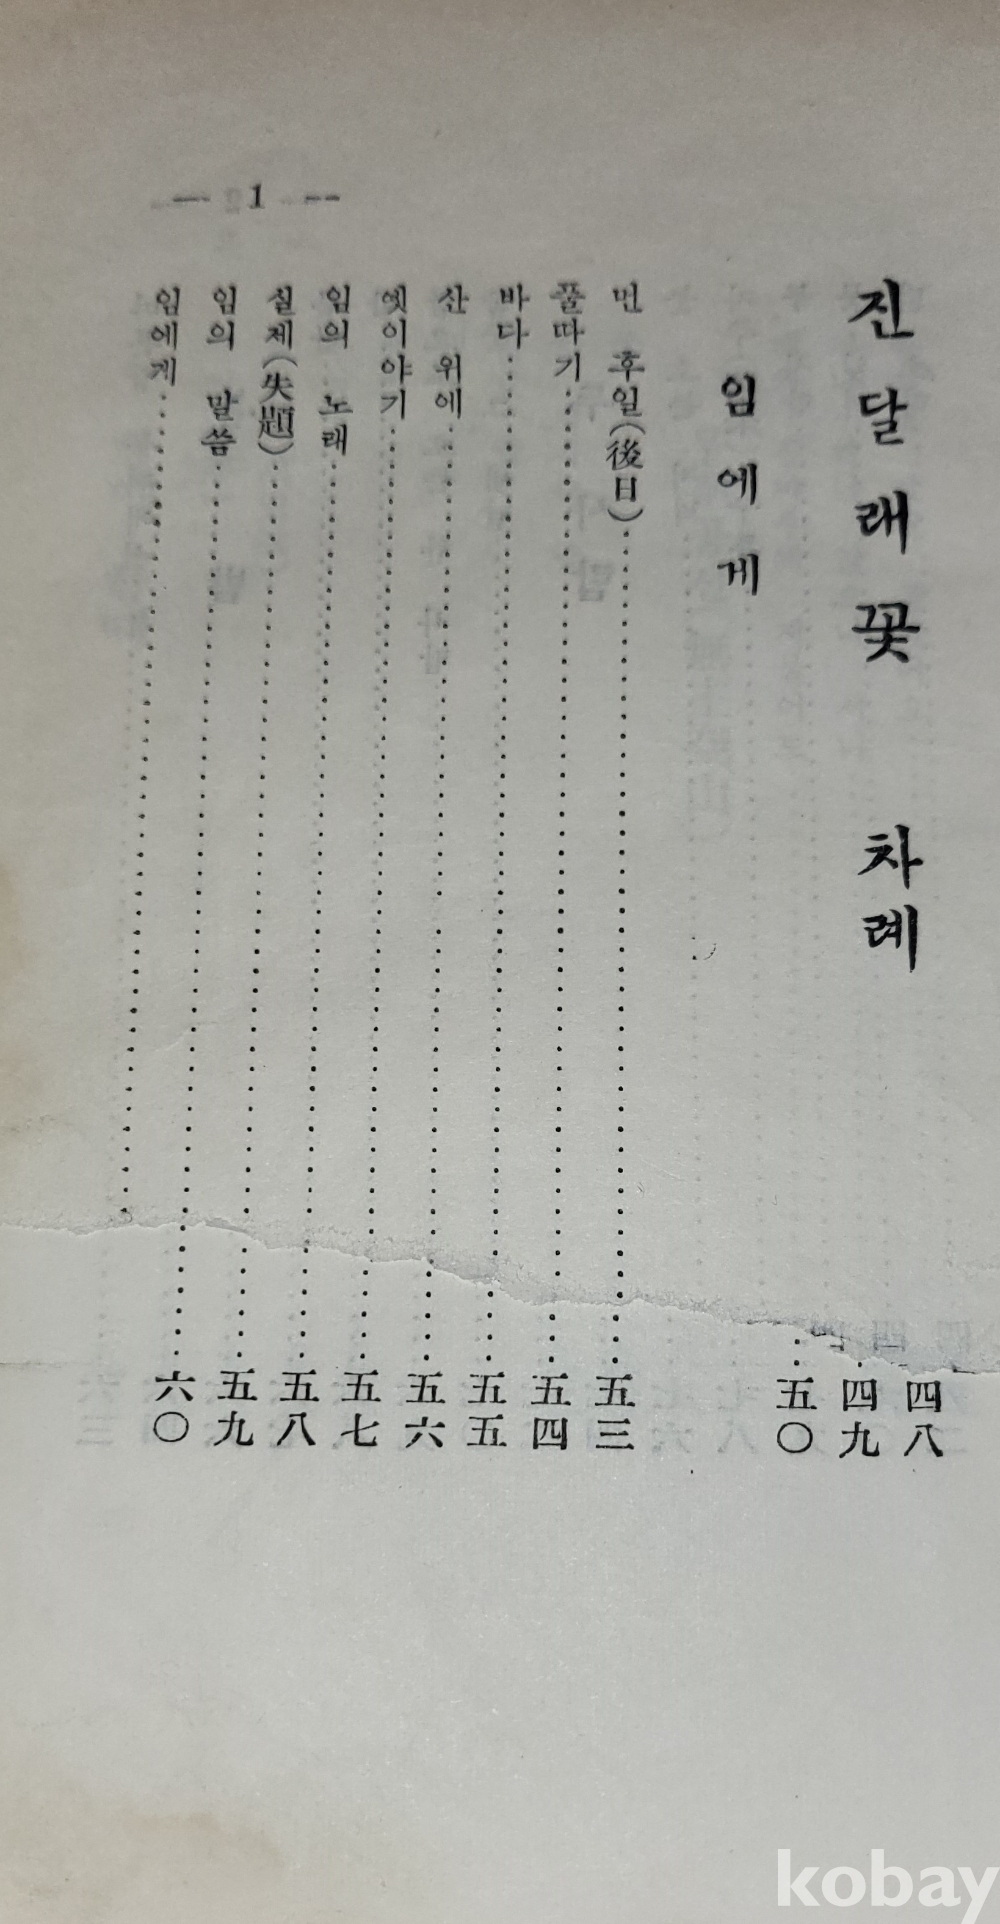 — 1 --
진달래꽃 차례
임에게
먼 후일(後日)……五三
풀따기……五四
바다……五五
산 위에……五六
옛이야기……五七
임의 노래……五八
실제(失題)……五九
임의 말씀……六〇
임에게……
四八
四九
五〇
kobay